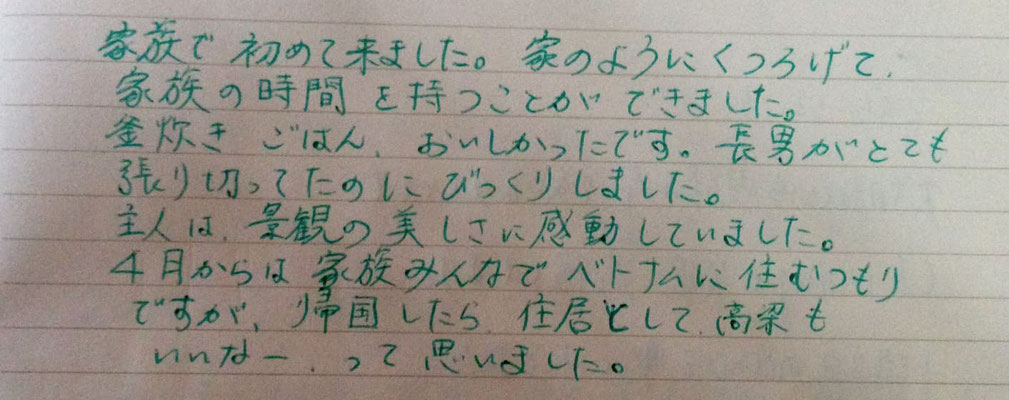 家族で初めて来ました。家のようにくつろげて、
家族の時間を持つことができました。
釜炊きごはん、おいしかったです。長男がとても
張り切ってたのにびっくりしました。
主人は、景観の美しさに感動していました。
4月からは家族みんなでベトナムに住むつもり
ですが、帰国したら、住居として、高梁も
いいなー、って思いました。